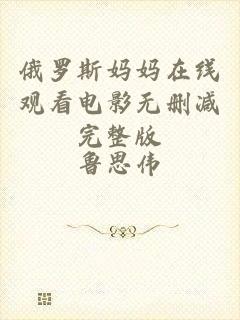 俄罗斯妈妈在线
观看电影无删减
完整版
鲁思伟